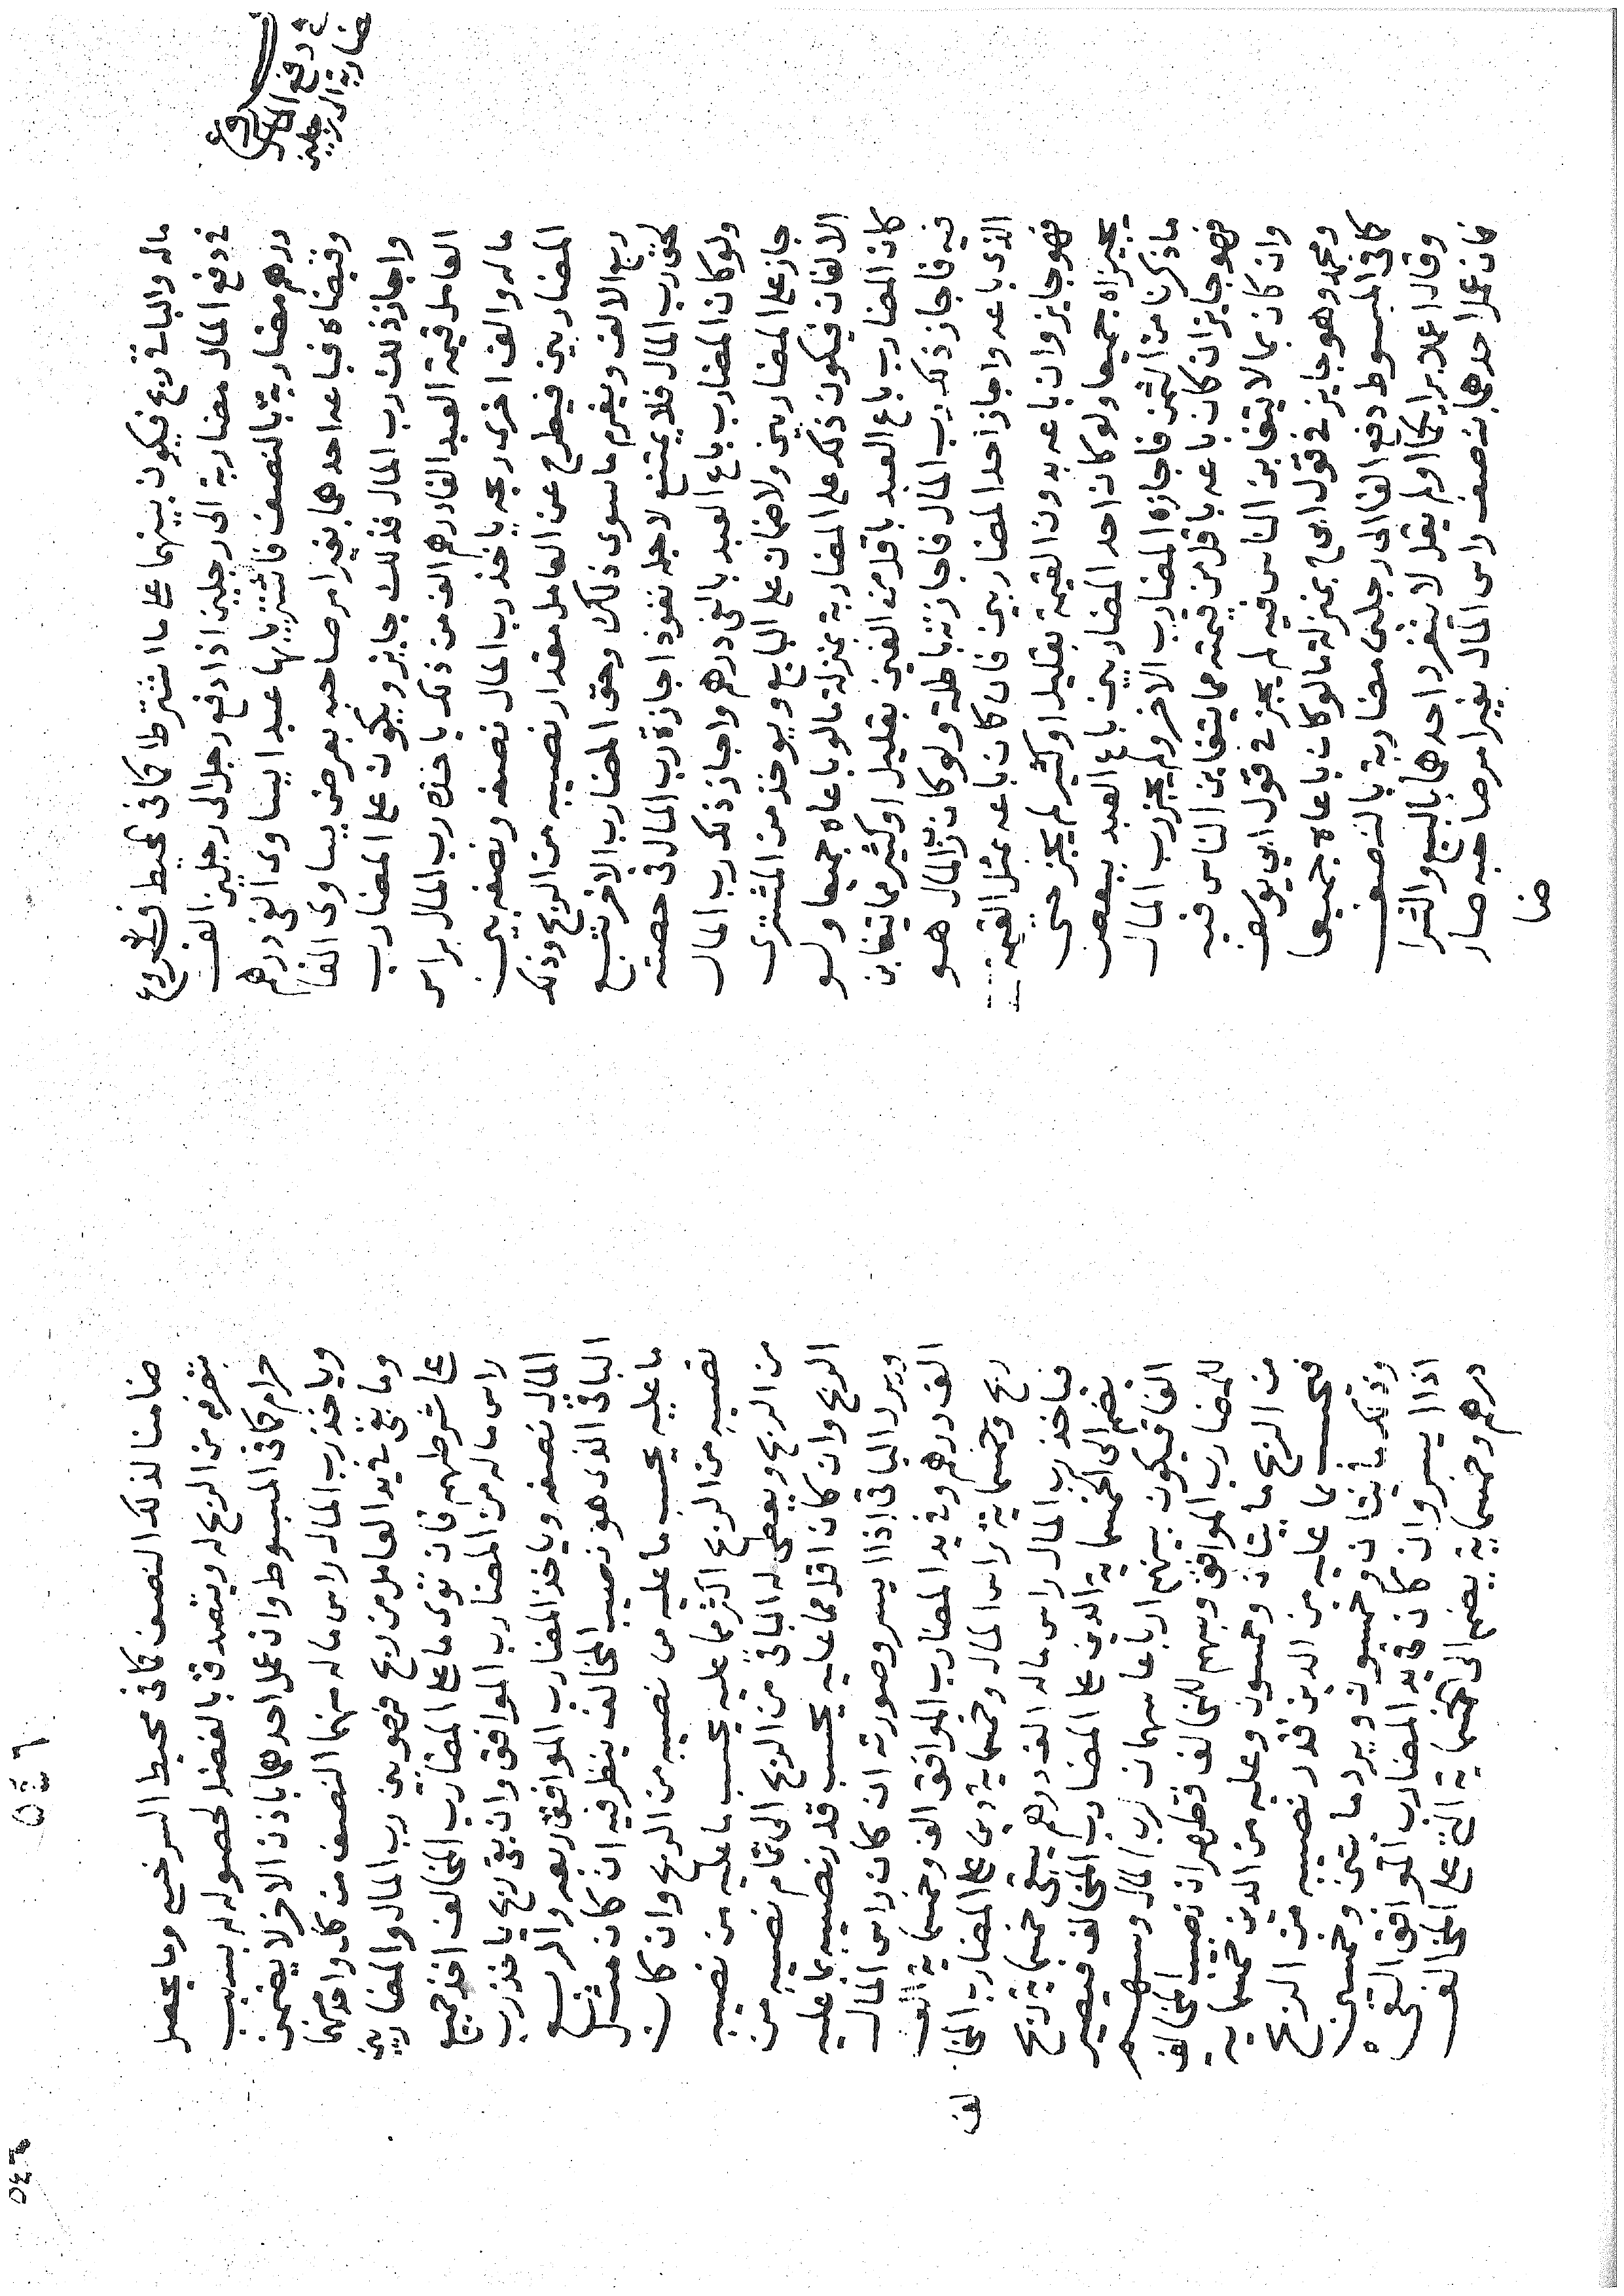 فى دفع المال
مضاربة الى رجلين
ماله والباقى ربح فيكون بينهما على ما اشترطا كذا فى محيط السرخسى نوع
فى دفع المال مضاربة الى رجلين اذا دفع رجل الى رجلين الف
درهم مضاربة بالنصف فاشتريا بها عبدا يساوى الفى درهم
وقبضاه فباعه احدهما بغير امر صاحبه بعرض يساوى الفا
واجاز ذلك رب المال فذلك جايز ويكون على المضارب
العامل قيمة العبد الفا درهم الف من ذلك ياخذه رب المال براس
ماله والف اخرى ربحه ياخذ رب المال نصفه ونصفه بين
المضاربين فيطرح عن العامل مقدار نصيبه من الربح وذلك
ربع الالف ويغرم ما سوى ذلك وحق المضارب الاخر تبع
لحق رب المال فلا يمتنع لاجله نفوذ اجازة رب المال فى حصته
ولو كان المضارب باع العبد بالفى درهم واجاز ذلك رب المال
جاز على المضاربين ولا ضمان على البايع ويوخذ من المشترى
الالفان فيكون ذلك على المضاربة بمنزلة ما لو باعاه جميعا ولو
كان المضارب باع العبد باقل من الفين بقليل او كثير مما يتغابن
فيه فاجاز ذلك رب المال فاجازته باطلة ولو كان رب المال هو
الذى باعه واجاز احد المضاربين فان كان باعه بمثل القيمة
فهو جايز وان باعه بدون القيمة بقليل او كثير لم يجز حتى
يجيزاه جميعا ولو كان احد المضاربين باع العبد ببعض
ما ذكرنا من الثمن فاجازه المضارب الاخر ولم يجز رب المال
فهو جايز ان كان باعه باقل من قيمته مما يتغابن الناس فيه
وان كان بما لا يتغابن الناس فيه لم يجز فى قول ابى يوسف
ومحمد وهو جايز فى قول ابى ح بمنزلة ما لو كان باعاه جميعا
كذا فى المبسوط دفع الفا الى رجلين مضاربة بالنصف
وقال اعملا برايكما او لم يقل لا ينفرد احدهما بالبيع والشرا
فان عمل احدهما بنصف راس المال بغير امر صاحبه صار
ضا
ضامنا لذلك النصف كذا فى محيط السرخسى وما يحصل
بتصرفه من الربح له ويتصدق بالفضل لحصوله له بسبب
حرام كذا فى المبسوط وان عمل احدهما باذن الاخر لا يضمن
وياخذ رب المال راس ماله منهما النصف من كل واحد منهما
وما بقى فى يد العامل من ربح فهو بين رب المال والمضاربين
على شرطهم فان توى ما على المضارب المخالف اخذ جميع
راس ماله من المضارب الموافق وان بقى ربح ياخذ رب
المال نصفه وياخذ المضارب الموافق ربعه والربع
الباقى الذى هو نصيب المخالف ينظر فيه ان كان مثل
ما عليه يحسب ما عليه من نصيبه من الربح وان كان
نصيبه من الربح اكثر مما عليه يحسب ما عليه من نصيبه
من الربح ويعطى له الباقى من الربح الى تمام نصيبه من
الربح وان كان اقل مما عليه يحسب قدر نصيبه بما عليه
ويرد الباقى اذا ايسر وصورته ان كان راس المال
الف درهم وفى يد المضارب الموافق الف وخمسماية الف
ربح وخمسماية راس المال وخمسماية دين على المضارب المخالف
فياخذ رب المال راس ماله الف درهم يبقى خمسماية ربح
يضم الى الخمسماية الدين على المضارب المخالف فيصير
الفا فيكون بينهم ارباعا سهمان لرب المال وسهم
للمضارب الموافق وسهم للمخالف فظهر ان نصيب المخالف
من الربح مايتان وخمسون وعليه من الدين خمسماية
فيحسب مما عليه من الدين قدر نصيبه من الربح
وذلك مايتان وخمسون ويرد مايتين وخمسين
اذا ايسر وان كان فى يد المضارب الموافق الفى
درهم وخمسماية يضم الى الخمسماية التى على المخالف